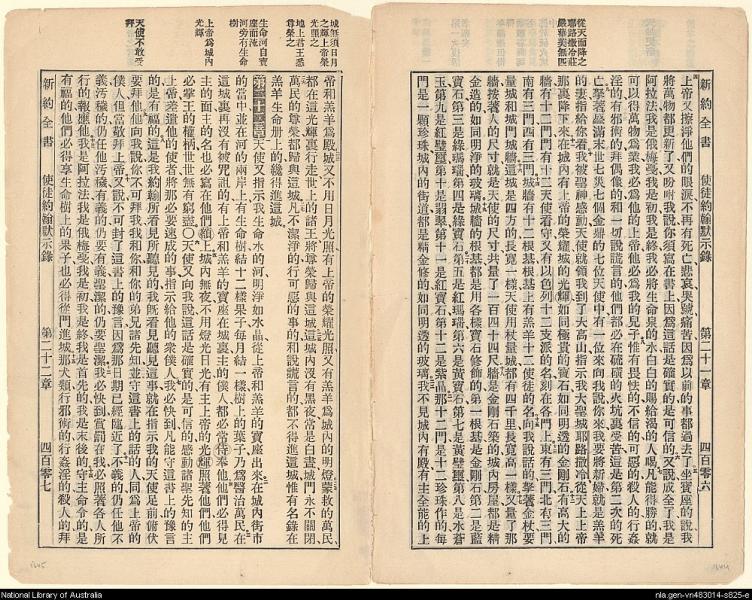 從天而降之
耶路撒冷莊
嚴華美無匹
新約全書 使徒約翰默示錄 第二十一章 四百零六
上帝又擦淨他們的眼淚不再有死亡悲哀哭號痛苦因爲以前的事都過去了坐寶座的說我
將萬物都更新了又吩咐我說你須寫在書上因爲這話是確實的是可信的又說成全了我是
阿拉法我是俄梅戛我是初我是終我必將生命泉的水白白的賜給渴的人喝凡能得勝的就
可以得萬物爲業我必爲他的上帝他必爲我的兒子惟有畏怯的不信的可惡的殺人的行姦
淫的有邪術的拜偶像的和一切說謊言的他們都必在硫磺的火坑裏受苦這是第二次的死
亡拏著盛滿末世七災七個金鼎的七位天使中有一位來向我說你來我要將新婦就是羔羊
的妻指給你看我被聖神感動天使就領我到了大高山指示我大聖城耶路撒冷從天上上帝
那裏降下來在城內有上帝的榮耀城的光輝如同極貴的寶石如同明透的金剛石有高大的
牆有十二門門有十二天使看守又有以色列十二支派的名刻在各門上東有三門北有三門
南有三門西有三門城牆有十二根基根基上有羔羊十二使徒的名向我說話的拏著金杖要
量城和城門城牆這城是四方的長寬一樣天使用杖量城都有四千里長寬高一樣又量了那
牆按著人的尺寸就是天使的尺寸共量了一百四十四尺牆是金剛石築的城內房屋都是精
金造的如同明淨的玻璃城牆的根基都是用各樣寶石修飾的第一根基是金剛石第二是藍
寶石第三是綠瑪瑙第四是綠寶石第五是紅瑪瑙第六是黃寶石第七是黃璧璽第八是水蒼
玉第九是紅璧璽第十是翡翠第十一是紅寶石第十二是紫晶那十二門是十二珍珠作的每
門是一顆珍珠城內的街道都是精金修的如同明透的玻璃我不見城內有殿有主全能的上
城無須日月
之輝上帝榮
光照之
地上君王悉
尊榮之
生命河自寶
座而流
河旁有生命
樹
上帝爲城內
光輝
天使不敢受
拜
帝和羔羊爲殿城又不用日月光照有上帝的榮耀光照又有羔羊爲城內的明燈蒙救的萬民
都在這光輝裏行走世上的諸王將尊榮歸與這城這城內沒有黑夜常是白晝城門永不關閉
萬民的尊榮都歸與這城凡不潔淨的行可惡的事的和說謊言的都不得進這城惟有名錄在
羔羊生命册上的纔得進這城
第二十二章 天使又指示我生命水的河明淨如水晶從上帝和羔羊的寶座出來在城內街市
的當中並在河的兩岸上有生命樹結十二樣果子每月結一樣樹上的葉子乃爲醫治萬民在
這城裏再沒有被咒詛的有上帝和羔羊的寶座在城裏上帝的僕人都必常侍奉他他們必得見
主的面主的名也必寫在他們額上城內無夜不用燈光日光有主上帝的光輝照著他們他們
必掌王的權柄世世無有窮盡○天使又向我說這話是確實的是可信的感動諸聖先知的主
上帝差遣他的使者將那必要速成的事指示給他的衆僕人我必快到凡能守這書上的豫言
的是有福的這是我約翰所看見所聽見的我旣看見聽見這事就在指示我的天使足前俯伏
要拜他他向我說你不可拜我我和你和你的弟兄諸先知並守這書上的話的人同爲上帝的
僕人但當敬拜上帝又說不可封了這書上的豫言因爲那日期已經臨近了不義的仍任他不
義汚穢的仍任他汚穢有義的仍要有義聖潔的仍要聖潔我必快到賞罰在我必照著各人所
行的報應他我是阿拉法我是俄梅戛我是初我是終我是首先的我是末後的守主命令的是
有福的他們必得享生命樹上的果子也必得從門進城那犬類行邪術的行姦淫的殺人的拜
新約全書 使徒約翰默示錄 第二十二章 四百零七
National Library of Australia
nla.gen-vn483014-s825-e